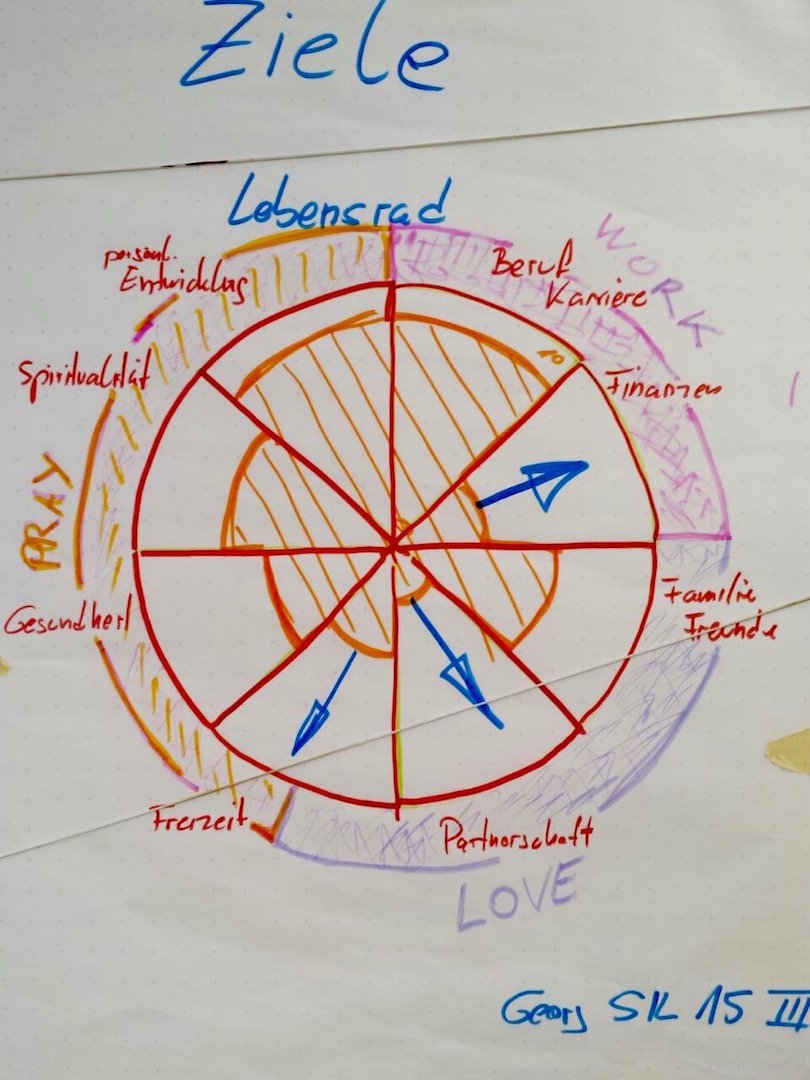 Ziele
Lebensrad
persönl.
Entwicklug
Beruf
Karriere
WORK
Spiritualität
Finanzen
10
PRAY
Gesundheit
Familie
Freunde
Freizeit
Partnerschaft
LOVE
Georg SK 15 III